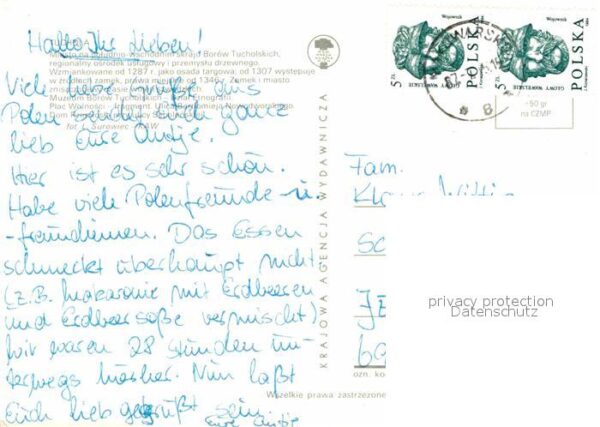 Hallo Ihr Lieben!
Miasto na południowo-wschodnim skraju Borów Tucholskich,
regionalny ośrodek usługowy i przemysłu drzewnego.
Wzmiankowane od 1287 r. jako osada targowa; od 1307 występuje
W źródłach zamek, prawa miejskie od 1346 r. Zamek i miasto
Muzeum Borów Tucholskich
Plac Wolności - fragment.
fot. J. Surowiec
Viele liebe Grüße aus
Polen sendet Euch ganz
lieb Eure Antje.
Hier ist es sehr schön.
Habe viele Polenfreunde u.
-freundinnen. Das Essen
schmeckt überhaupt nicht
(z.B. Makaronie mit Erdbeeren
und Erdbeersoße vermischt)
Wir waren 28 Stunden un-
terwegs hierher. Nun laßt
Euch lieb gegrüßt sein
Eure Antje
KRAJOWA AGENCJA WYDAWNICZA
Wszelkie prawa zastrzeżone
ozn. ko
Wojownik
5 ZŁ
GŁOWY WAWELSKIE
POLSKA
Wojownik
5 ZŁ
GŁOWY WAWELSKIE
POLSKA
50 gr
na CZMP
Fam.
privacy protection
Datenschutz